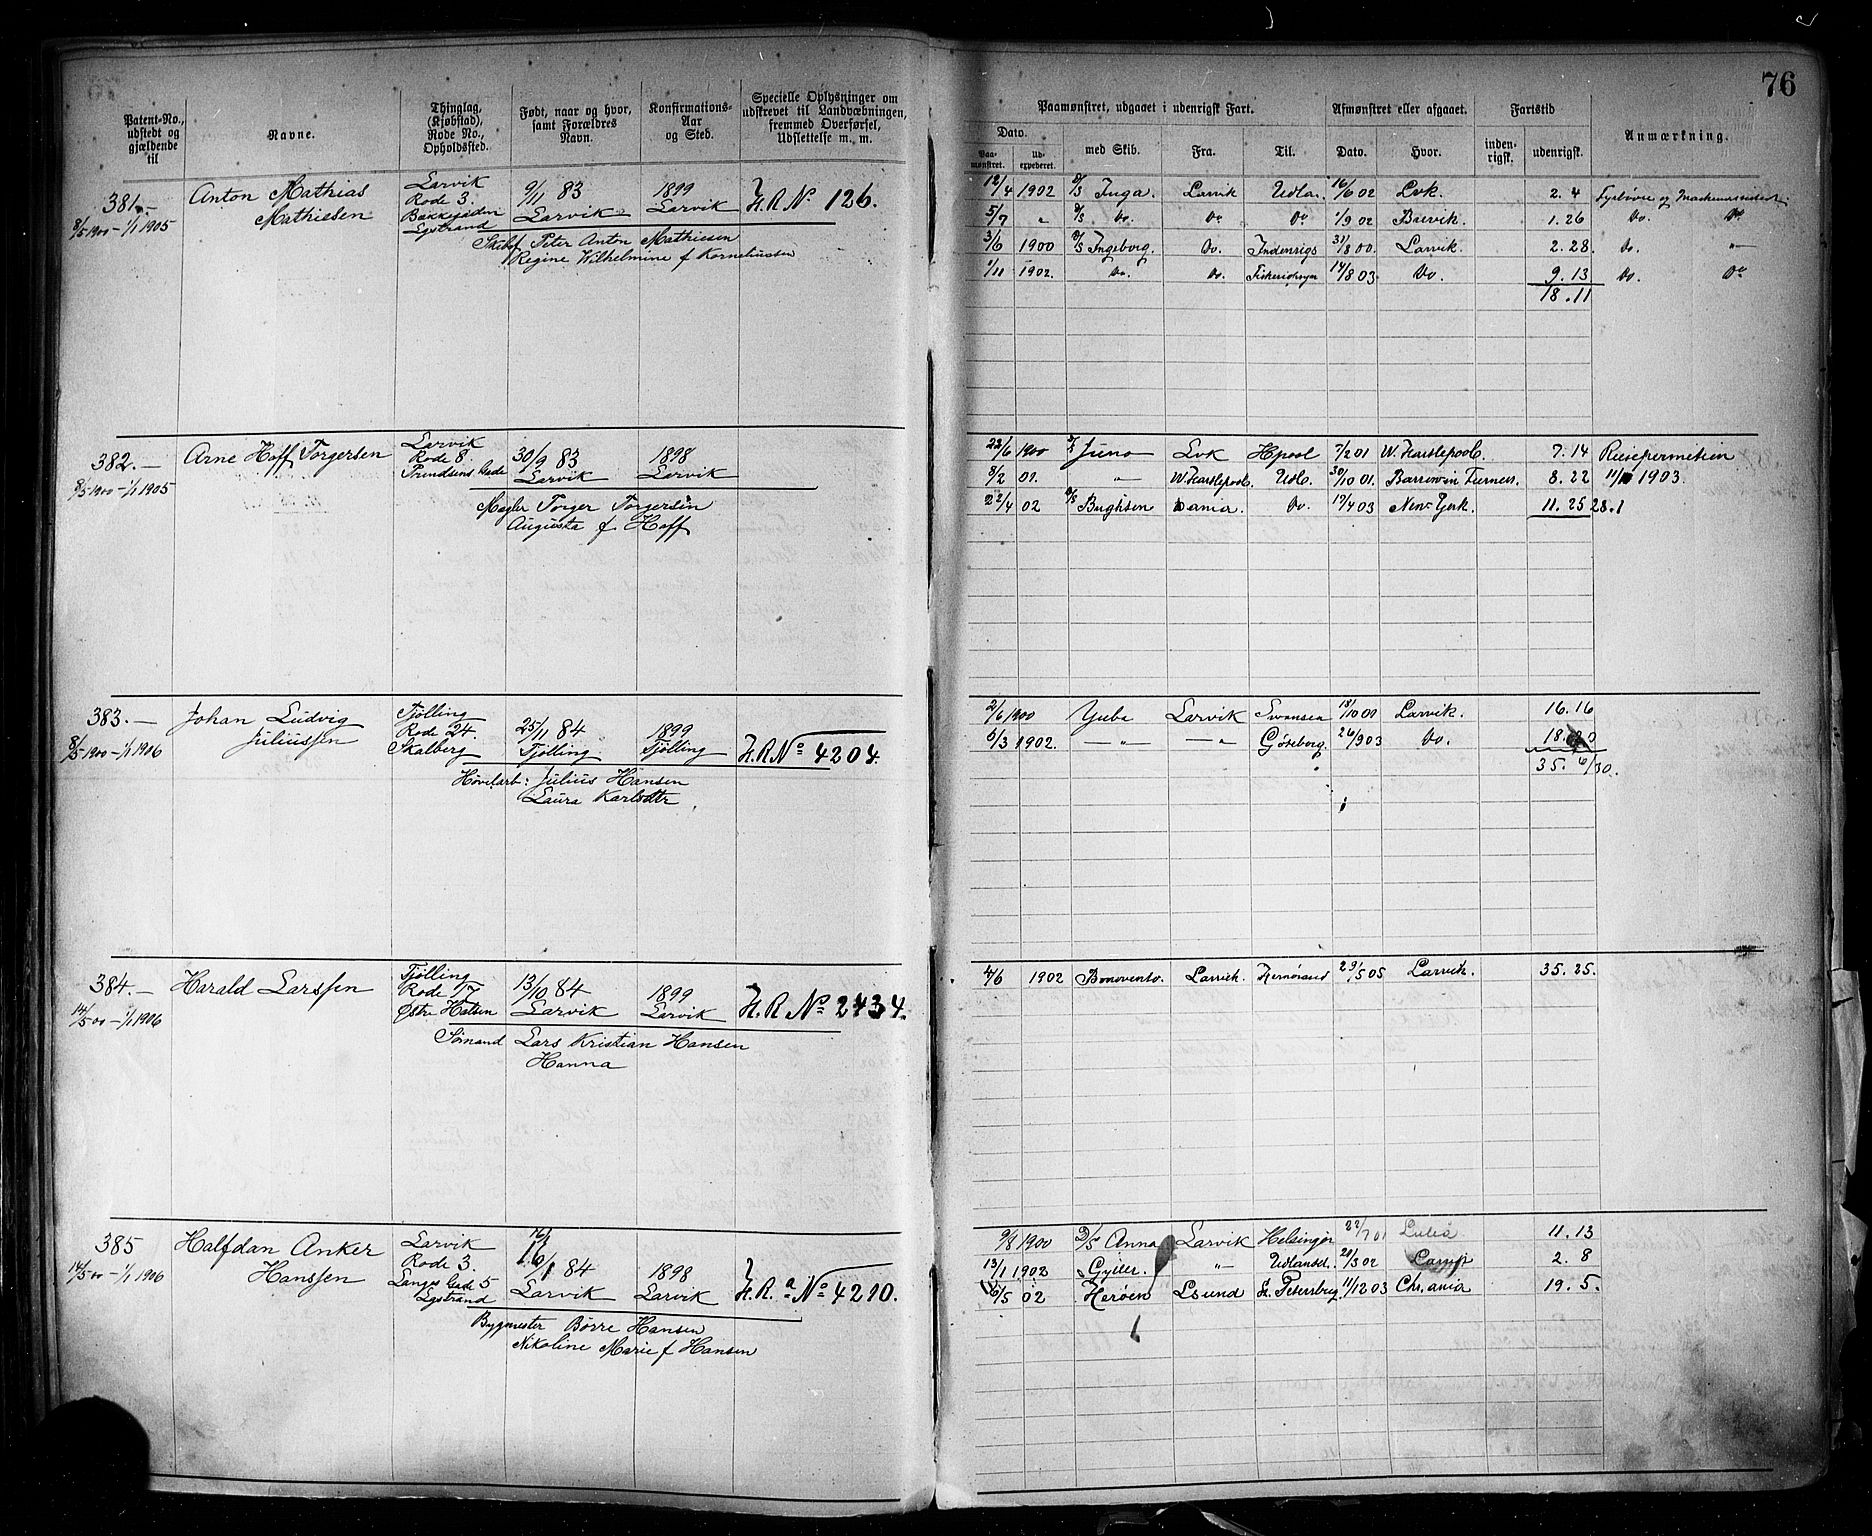 76
Patent-No., udstedt og gjældende til
Navne.
Thinglag, (Kjøbstad), Rode No., Opholdsted.
Født, naar og hvor, samt Forældres Navn.
Konfirmations-Aar og Sted.
Specielle Oplysninger om udskrevet til Landvæbningen, fremmed Overførsel, Udslettelse m. m.
Paamønstret, udgaaet i udenrigsk Fart.
Afmønstret eller afgaaet.
Fartstid
Anmærkning.
Dato.
Paa-mønstret.
Ud-expederet.
med Skib.
Fra.
Til.
Dato.
Hvor.
inden-rigsk.
udenrigsk.
381.
8/5 1900 – 1/1 1905
Anton Mathias
Mathiesen
Larvik
Rode 3.
Bakkegaden
Egstrand
9/11 83
Larvik
1899
Larvik
H.R. No 126.
Peter Anton Mathiesen
Regine Wilhelmine f Korneliussen
12/4 1902 D/S Inga. Larvik Udla. 16/6 02 Lvk. 2. 4
5/7 " D/S Do. Do Do 1/9 02 Brevik. 1. 26 Do. Do
3/6 1900 D/S Ingeborg. Do. Indenrigs 31/8 00. Larvik. 2. 28. Do. "
1/11 1902. Do. Do. 14/8 03 Do. 9. 13 Do. Do
18. 11
382. –
8/5 1900 – 1/1 1905
Arne Hoff Torgersen
Larvik
Rode 8
Prindsens Gade
30/9 83
Larvik
1898
Larvik
Mægler Torger Torgersen
Augusta f Hoff
22/6 1900 Juno Lvk Hpool 7/2 01 W. Hartlepool. 7. 14
8/2 01. " W. Hartlepool. Udl. 30/10 01. Barrow in Furness. 8. 22 1903.
22/4 02 Do. 19/4 03 New-York. 11. 25 28.1
383. –
8/5 1900 – 1/1 1906
Johan Ludvig
Juliussen
Tjølling
Rode 24.
Skalberg
25/11 84
Tjølling
1899
Tjølling
H.R No 4204.
Høvlarb: Julius Hansen
Laura Karlsdtr
2/6 1900 Yuba Larvik Swansea 18/10 01 Larvik. 16. 16
6/3 1902. — " — — " Göteborg. 26/9 03 Do.
35. 6/30.
384. –
14/5 00 – 1/1 1906
Harald Larssen
Tjølling
Rode 17
Østr. Halsen
13/10 84
Larvik
1899
Larvik
H.R No 2434.
Sømand Lars Kristian Hansen
Hanna
4/6 1902 Bonovento. Larvik. Hernösand 29/5 05 Larvik. 35. 25.
385
14/5 00 – 1/1 1906
Halfdan Anker
Hanssen
Larvik
Rode 3.
Langes Gade 5
Egstrand
16/1 84
Larvik
1898
Larvik
H.R. a No 4210.
Bygmester Börre Hansen
Nikoline Marie f Hansen
9/8 1900 D/S Anna Larvik Helsingør 22/7 01 Luleå 11. 13
13/1 1902 Gyller. " Udlandet. 20/3 02 2. 8
16/5 02 Herøen Lsund St. Petersbrg 11/12 03 Chr.ania 19. 5.